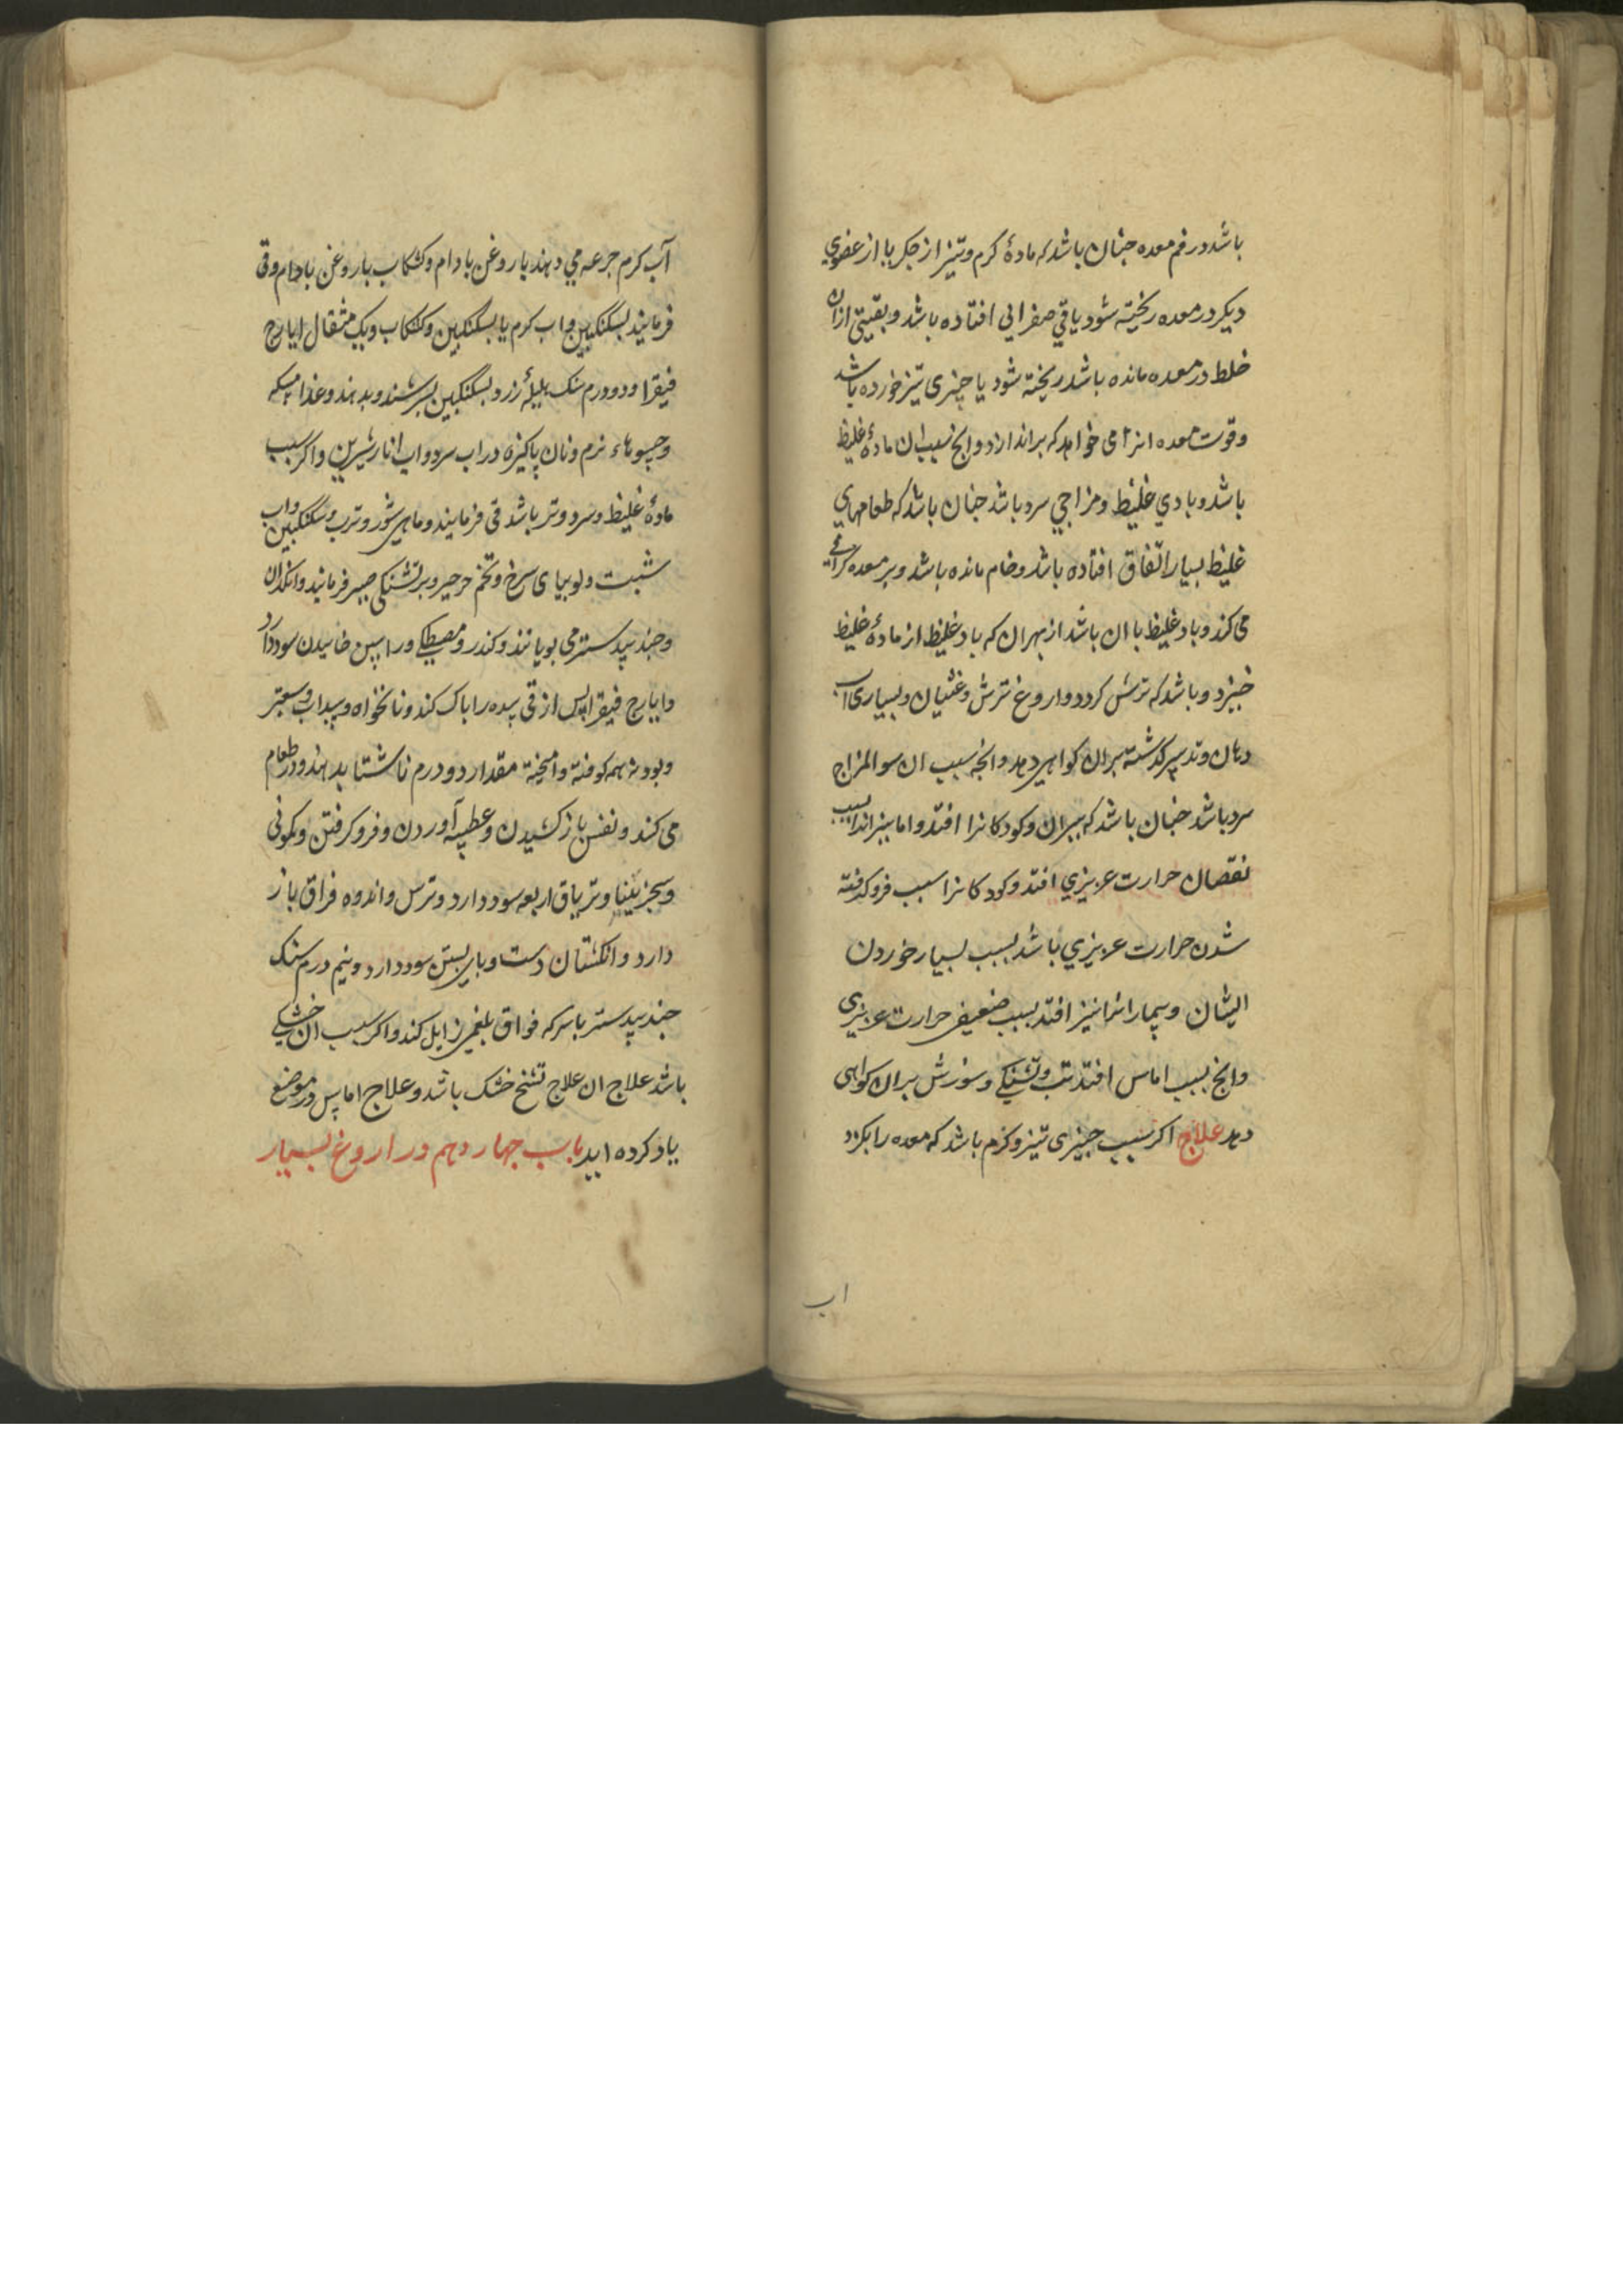 باشد در فم معده جنان باشد که مادۀ کرم و تیز از جکر یا از عضوی
دیکر در معده ریخته شود یا قی صفرائی افتاده باشد و بقیتی ازان
خلط در معده مانده باشد ریخته شود یا چیزی تیز خورده باشد
و قوت معده انرا می خواهد که براندازد و انج بسبب ان مادۀ غلیظ
باشد و بادی غلیظ و مزاجی سرد باشد جنان باشد که طعامهای
غلیظ بسیار اتفاق افتاده باشد و خام مانده باشد و بر معده کرانی
می کند و باد غلیظ با ان باشد از بهر ان که باد غلیظ از مادۀ غلیظ
خیزد و باشد که ترش کردد و اروغ ترش و غثیان و بسیاری آب
دهان و تدبیر کذشته بران کواهی دهد و انجه سبب ان سوالمزاج
سرد باشد جنان باشد که پیران و کودکانرا افتد و اما پیرانرا بسبب
نقصان حرارت عریزی افتد و کودکانرا سبب فروکفته
شدن حرارت عریزی باشد بسبب بسیار خوردن
ایشان و بیمارانرا نیز افتد بسبب ضعیفی حرارت عریزی
و انج بسبب اماس افتد تب و تشنکی و سوزش بران کواهی
دهد علاج اکر سبب جیزی تیز و کرم باشد که معده را بکزد
اب
آب کرم جرعه می دهند با روغن بادام و کشکاب با روغن بادام و قی
فرمایند بسکنکبین و اب کرم یا بسکنکبین و کشکاب و یک مثقال ایارج
فیقرا و دو درم سنک هلیلۀ زرد بسکنکبین بسرشند و بدهند و غذا مسکه
و حسوهاء نرم و نان پاکیزه در اب سرد و اب انار شیرین و اکر سبب
مادۀ غلیظ و سرد و تر باشد قی فرمایند و ماهی شور و ترب و سکنکبین و اب
شبت و لوبیای سرخ و تخم جرجیر و بر تشنکی صبر فرمایند و انکدان
و جندبیدستر می بویانند و کندر و مصطکی و راسن خاییدن سود دارد
و ایارج فیقرا پس از قی معده را پاک کند و نانخواه و سداب و سعتر
و پودنه همه کوفته و امیخته مقدار دو درم ناشتا بدهند و در طعام
می کند و نفس باز کشیدن و عطسه آوردن و فرو کرفتن و کمونی
و سجزنینا و تریاق اربعه سود دارد و ترس و اندوه فراق باز
دارد و انکشتان دست و پای بستن سود دارد و نیم درم سنک
جندبیدستر با سرکه فواق بلغمی زایل کند و اکر سبب ان خشکی
باشد علاج ان علاج تشنج خشک باشد و علاج اماس در موضع
یاد کرده اید باب جهاردهم در اروغ بسیار